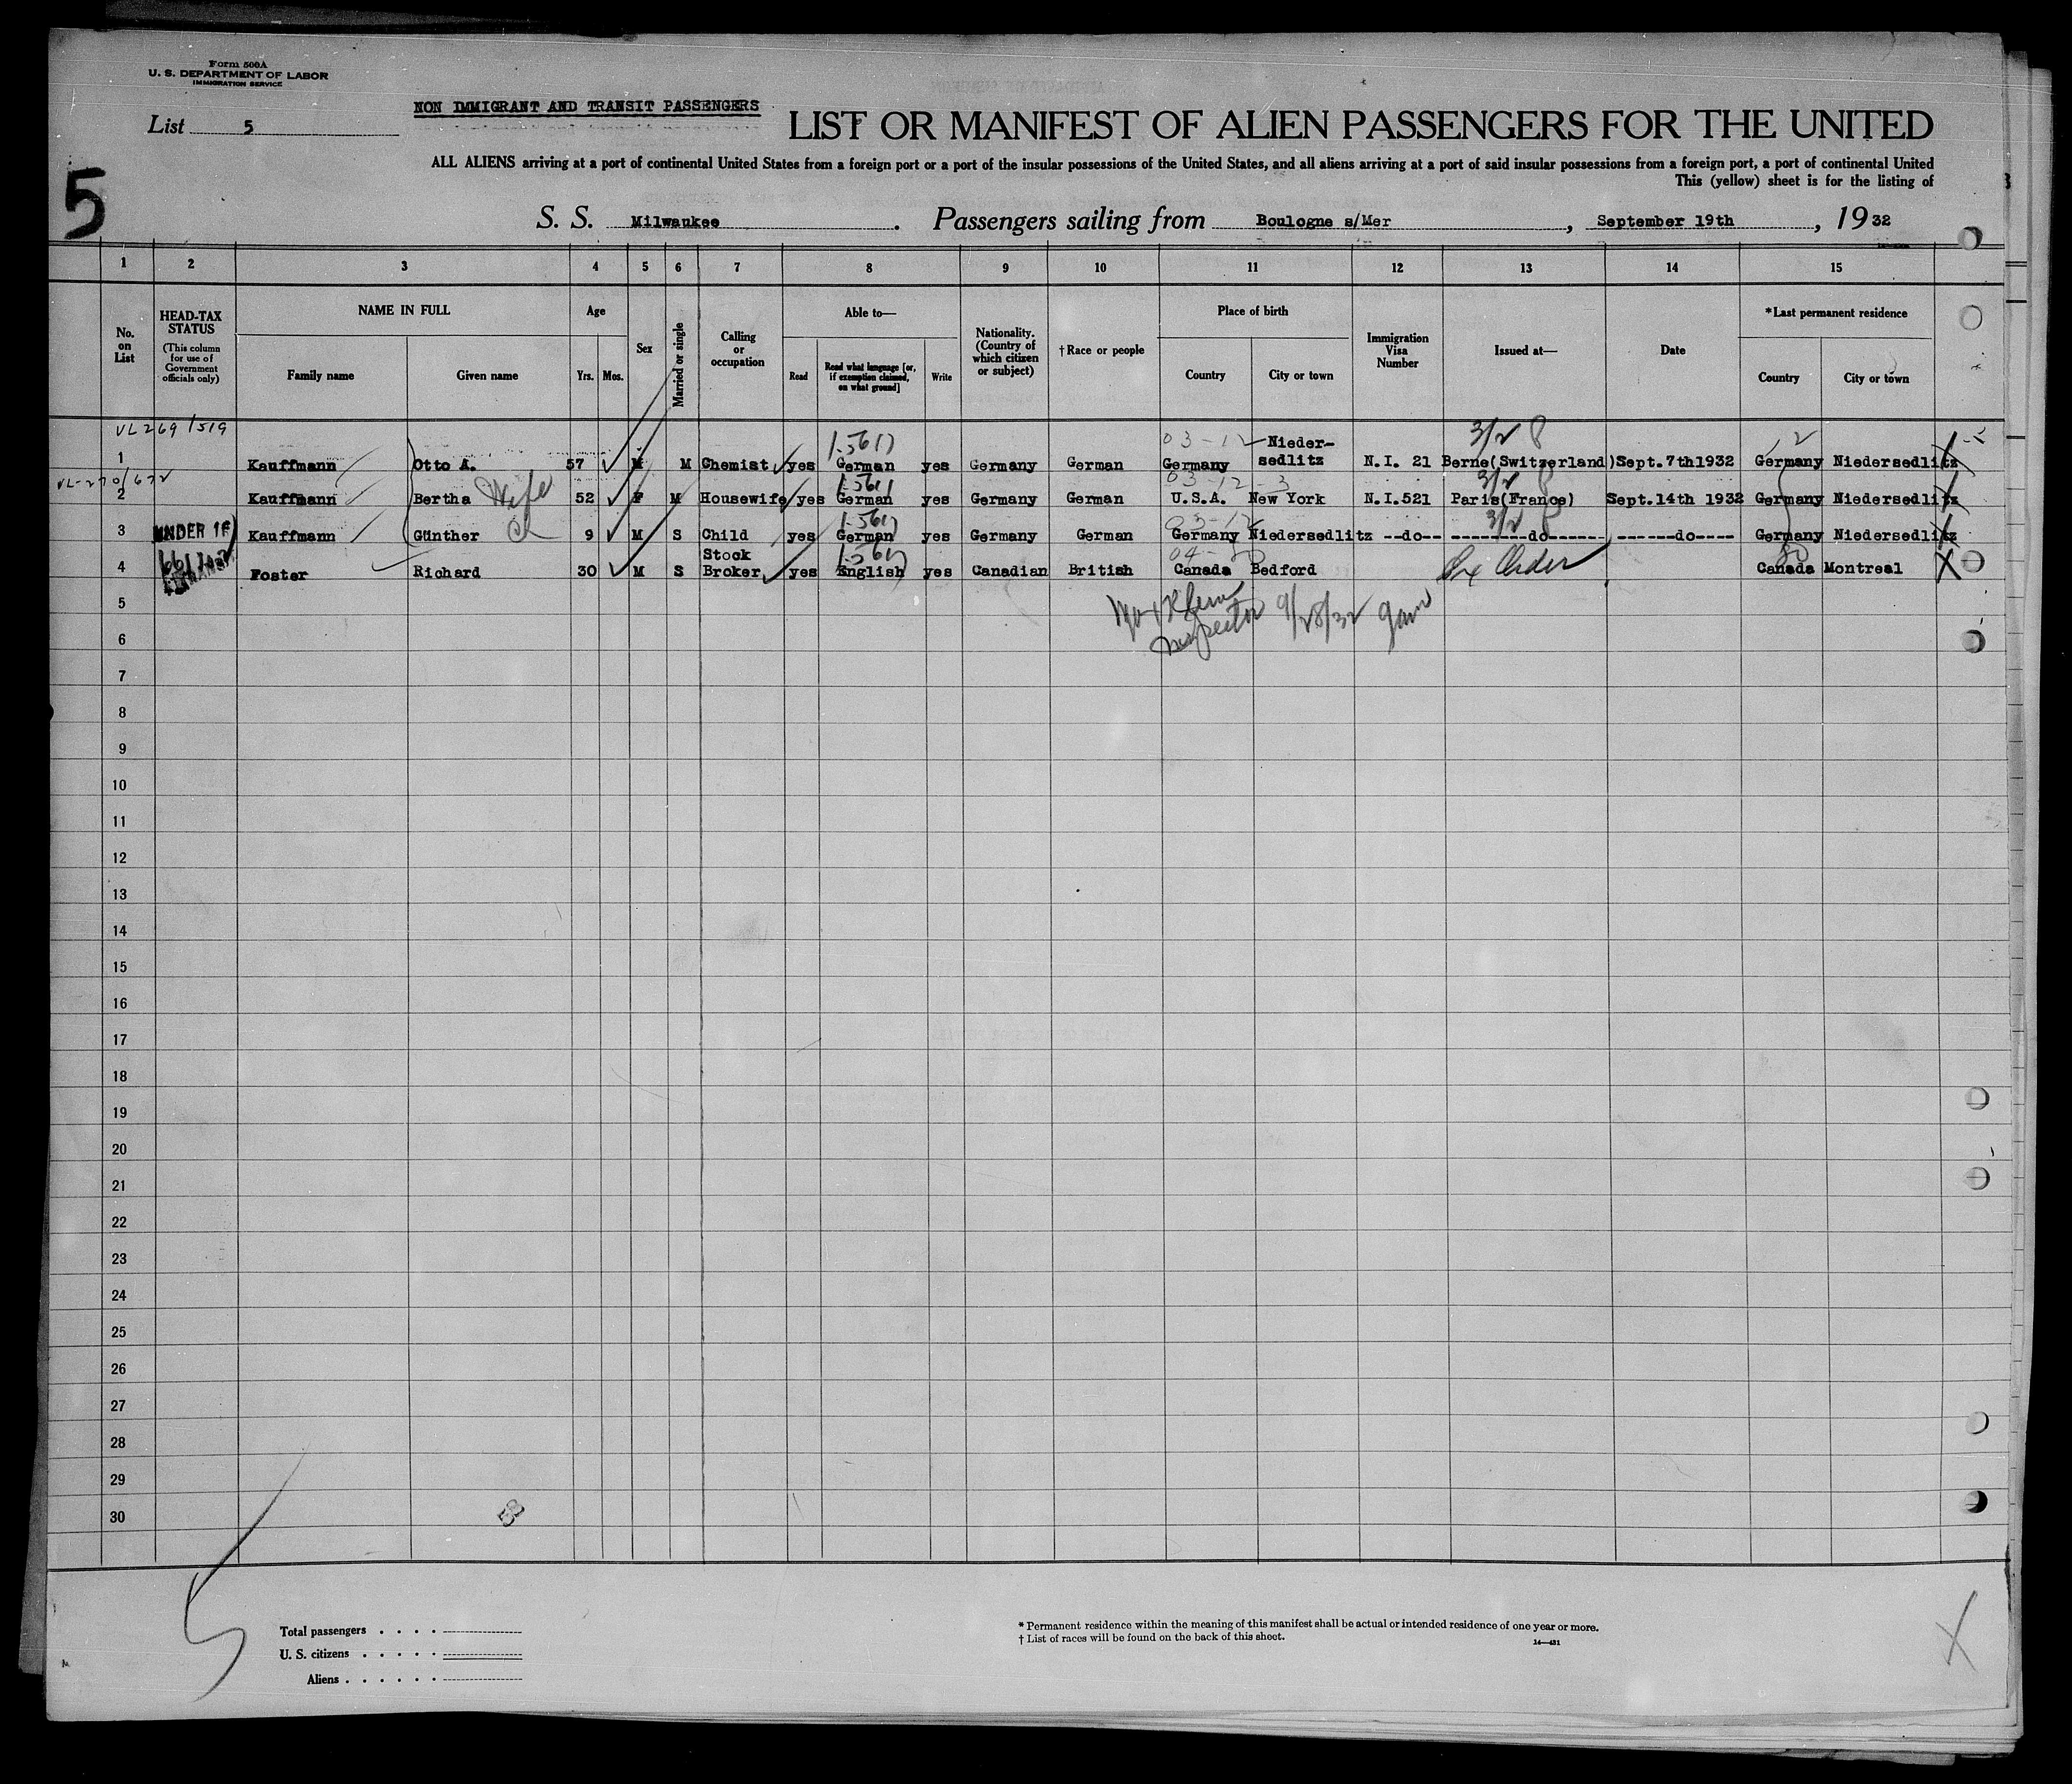 Form 500A
U. S. DEPARTMENT OF LABOR
IMMIGRATION SERVICE
NON IMMIGRANT AND TRANSIT PASSENGERS
List 5
LIST OR MANIFEST OF ALIEN PASSENGERS FOR THE UNITED
ALL ALIENS arriving at a port of continental United States from a foreign port or a port of the insular possessions of the United States, and all aliens arriving at a port of said insular possessions from a foreign port, a port of continental United
This (yellow) sheet is for the listing of
5
S. S. Milwaukee. Passengers sailing from Boulogne s/Mer, September 19th, 1932
1 2 3 4 5 6 7 8 9 10 11 12 13 14 15
No. on List
HEAD-TAX STATUS
(This column for use of Government officials only)
NAME IN FULL
Family name
Given name
Age
Yrs. Mos.
Sex
Married or single
Calling or occupation
Able to—
Read
Read what language [or, if exemption claimed, on what ground]
Write
Nationality. (Country of which citizen or subject)
†Race or people
Place of birth
Country
City or town
Immigration Visa Number
Issued at—
Date
*Last permanent residence
Country
City or town
VL 269/519
1 Kauffmann Otto A. 57 M M Chemist yes German yes Germany German Germany Nieder-sedlitz N.I. 21 Berne(Switzerland) Sept.7th1932 Germany Niedersedlitz
VL-270/672
2 Kauffmann Bertha Wife 52 F M Housewife yes German yes Germany German U.S.A. New York N.I.521 Paris(France) Sept.14th 1932 Germany Niedersedlitz
3 UNDER 16 Kauffmann Günther Ch 9 M S Child yes German yes Germany German Germany Niedersedlitz --do-- --------do------- ------do---- Germany Niedersedlitz
4 Foster Richard 30 M S Stock Broker yes English yes Canadian British Canada Bedford Ex Order Canada Montreal
5
Inspector 9/28/32
6
7
8
9
10
11
12
13
14
15
16
17
18
19
20
21
22
23
24
25
26
27
28
29
30
53
5
Total passengers . . . .
U. S. citizens . . . . .
Aliens . . . . . .
* Permanent residence within the meaning of this manifest shall be actual or intended residence of one year or more.
† List of races will be found on the back of this sheet.
14—431
X